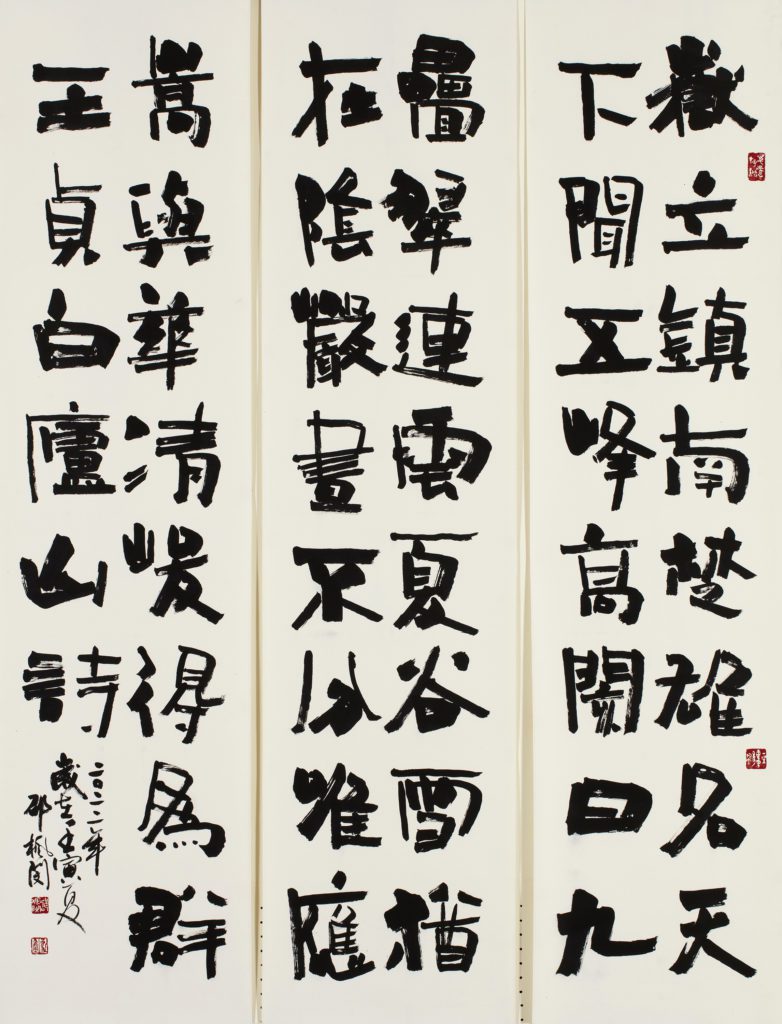 嶽立鎮南楚雄名天
下聞五峰高閡日九
疊翠連雲夏谷雪猶
在陰巖晝不分唯應
嵩與華清峻得為群
王貞白廬山詩
二〇二二年
歲在壬寅夏
邵楓